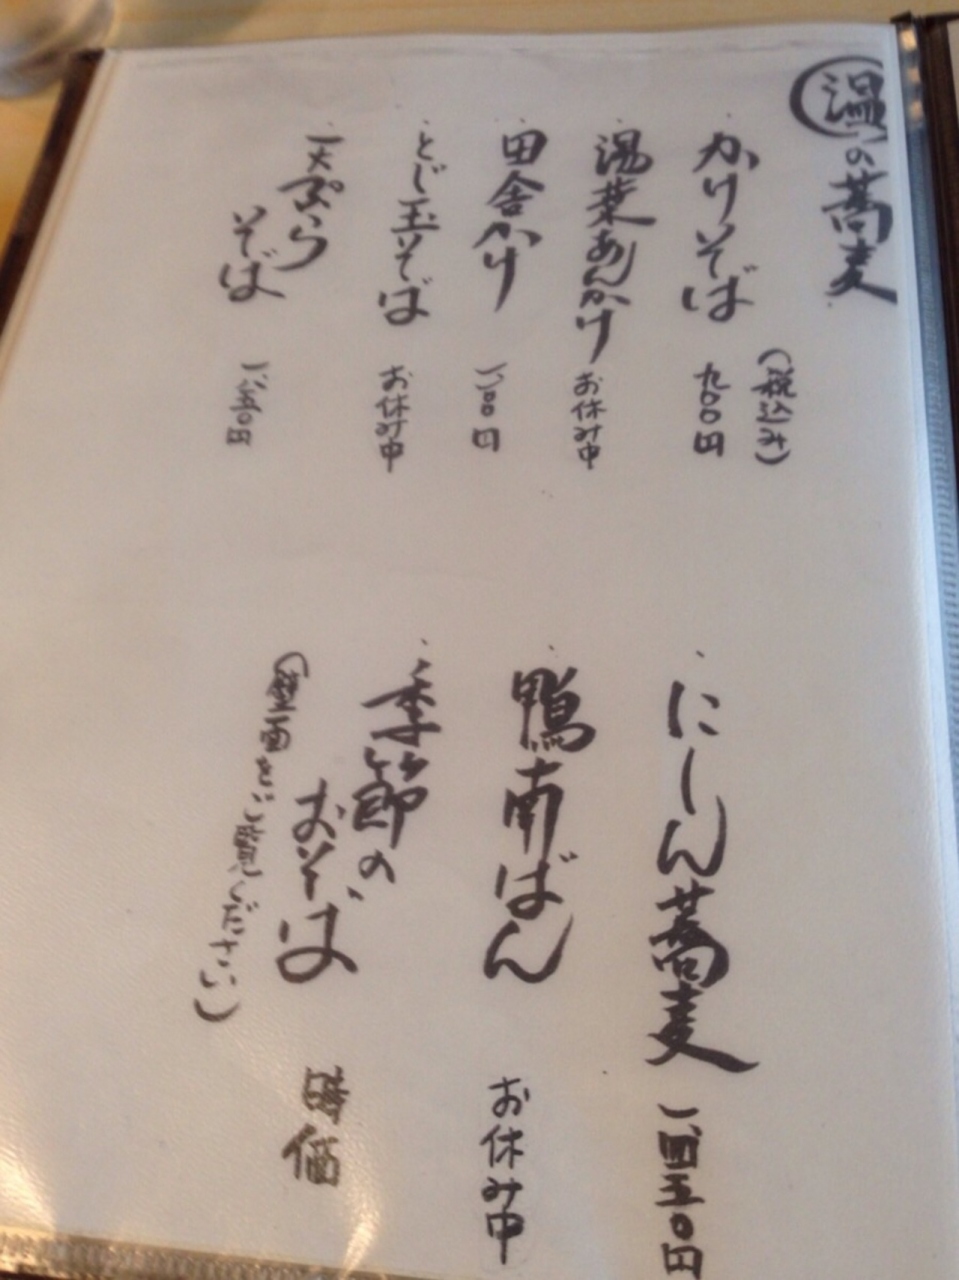 温の蕎麦
(税込み)
かけそば 九〇〇円
湯葉あんかけ お休み中
田舎かけ 一、一〇〇円
とじ玉そば お休み中
天ぷら
そば 一、八五〇円
にしん蕎麦 一、四五〇円
鴨南ばん お休み中
季節の
おそば 時価
(壁面をご覧ください)